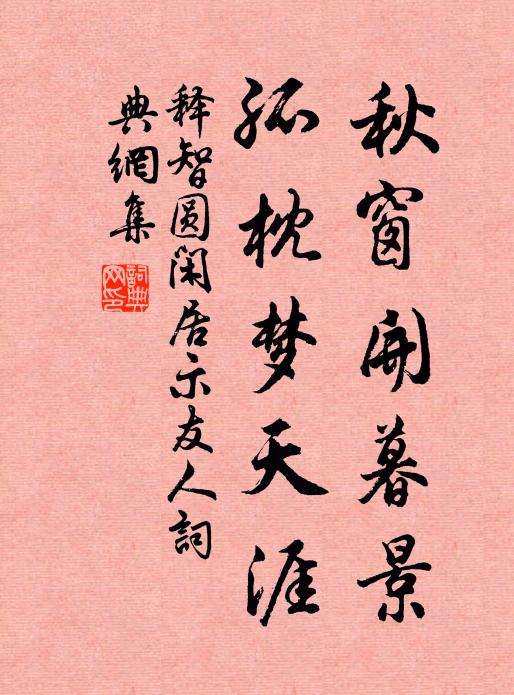 秋窗開暮景
孤枕梦天涯
释智圓閑居示友人詞
典網集
詞典网印